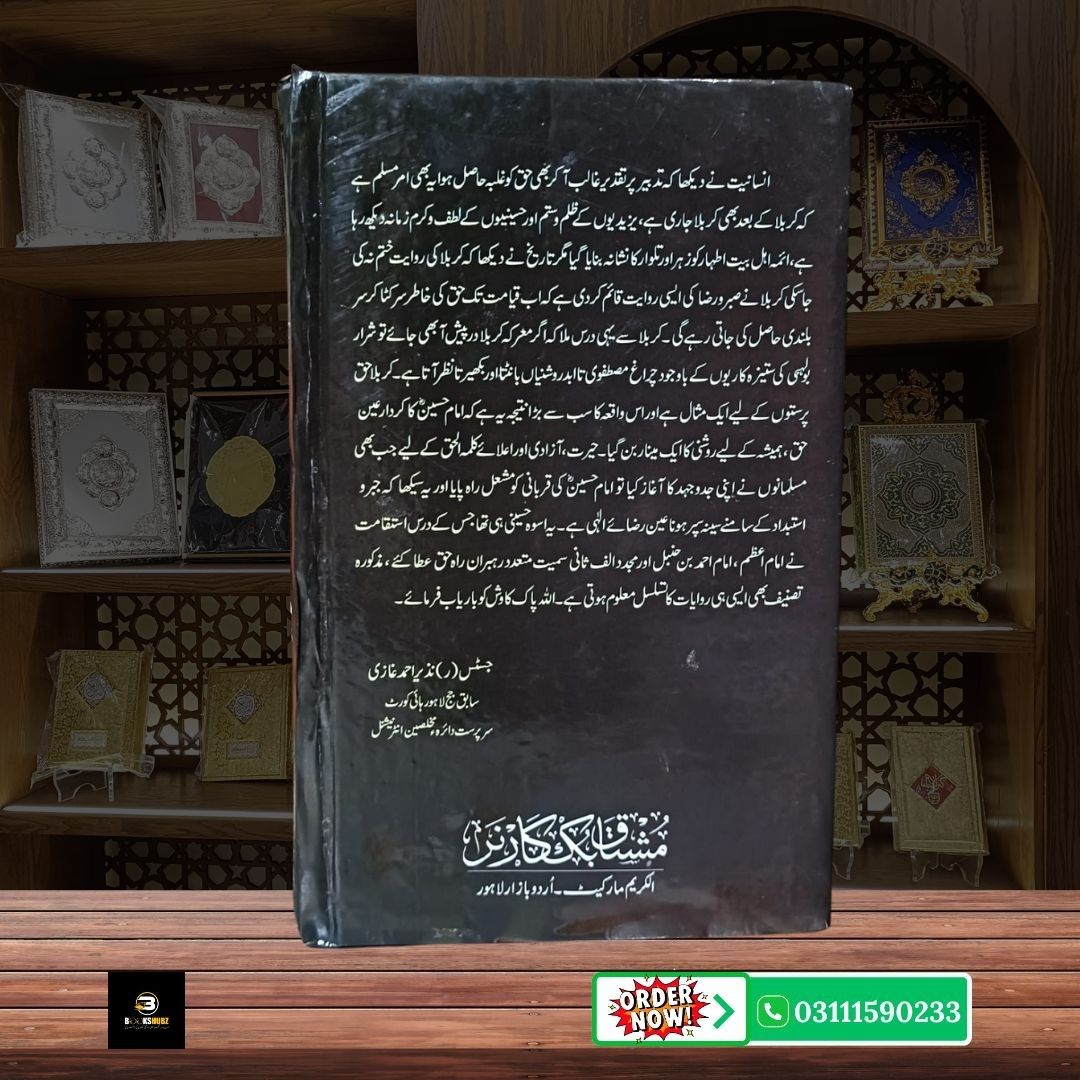 انسانیت نے دیکھا کہ تدبیر پر تقدیر غالب آ کر بھی حق کو غلبہ حاصل ہوا یہ بھی امر مسلم ہے
کہ کربلا کے بعد بھی کربلا جاری ہے، یزیدیوں کے ظلم و ستم اور حسینیوں کے لطف و کرم زمانہ دیکھ رہا
ہے، ائمہ اہل بیت اطہار کو زہر اور تلوار کا نشانہ بنایا گیا مگر تاریخ نے دیکھا کہ کربلا کی روایت ختم نہ کی
جا سکی کربلا نے صبر و رضا کی ایسی روایت قائم کر دی ہے کہ اب قیامت تک حق کی خاطر سر کٹا کر سر
بلندی حاصل کی جاتی رہے گی۔ کربلا سے یہی درس ملا کہ اگر معرکہ کربلا درپیش آ بھی جائے تو شرار
بولہبی کی ستیزہ کاریوں کے باوجود چراغ مصطفوی تا ابد روشنیاں بانٹتا اور بکھیرتا نظر آتا ہے۔ کربلا حق
پرستوں کے لیے ایک مثال ہے اور اس واقعہ کا سب سے بڑا نتیجہ یہ ہے کہ امام حسینؓ کا کردار عین
حق، ہمیشہ کے لیے روشنی کا ایک مینار بن گیا۔ حیرت، آزادی اور اعلائے کلمۃ الحق کے لیے جب بھی
مسلمانوں نے اپنی جدوجہد کا آغاز کیا تو امام حسینؓ کی قربانی کو مشعل راہ پایا اور یہ سیکھا کہ جبر و
استبداد کے سامنے سینہ سپر ہونا عین رضائے الٰہی ہے۔ یہ اسوہ حسینی ہی تھا جس کے درس استقامت
نے امام اعظم، امام احمد بن حنبل اور مجدد الف ثانی سمیت متعدد رہبران راہ حق عطا کئے، مذکورہ
تصنیف بھی ایسی ہی روایات کا تسلسل معلوم ہوتی ہے۔ اللہ پاک کاوش کو باریاب فرمائے۔
جسٹس (ر) نذیر احمد غازی
سابق جج لاہور ہائی کورٹ
سرپرست دائرہ مخلصین انٹرنیشنل
مُشتاق بک کارنر
الکریم مارکیٹ۔ اُردو بازار لاہور
BOOKSHUBZ
ORDER NOW!
03111590233